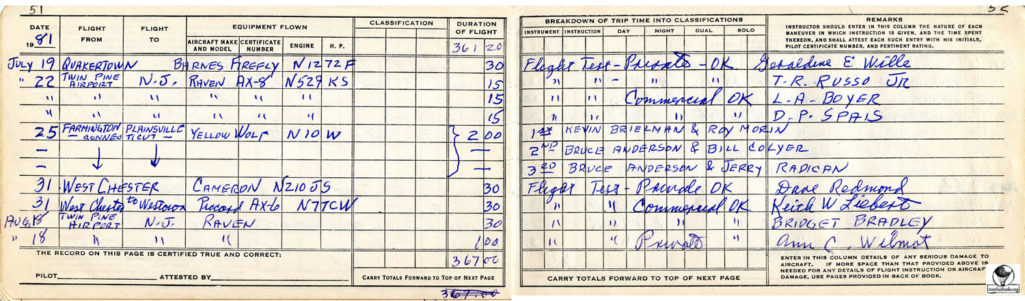 51
DATE
1981
FLIGHT FROM
FLIGHT TO
EQUIPMENT FLOWN
AIRCRAFT MAKE AND MODEL
CERTIFICATE NUMBER
ENGINE
H. P.
CLASSIFICATION
DURATION OF FLIGHT
361 20
JULY 19 QUAKERTOWN BARNES FIREFLY N1272F 30
" 22 TWIN PINE AIRPORT N.J. RAVEN AX-8 N529KS 15
" " " " " " 15
" " " " " " 15
25 FARMINGTON PLAINSVILLE YELLOW WOLF N10W 2 00
— CONNECTICUT —
—
—
31 WEST CHESTER CAMERON N210JS 30
31 West Chester to Westown Piccard AX-6 N77CW 30
AUG. 18 TWIN PINE AIRPORT N.J. RAVEN 30
" 18 " " " 1 00
THE RECORD ON THIS PAGE IS CERTIFIED TRUE AND CORRECT:
367 00
PILOT ATTESTED BY
CARRY TOTALS FORWARD TO TOP OF NEXT PAGE
367.00
52
BREAKDOWN OF TRIP TIME INTO CLASSIFICATIONS
INSTRUMENT
INSTRUCTION
DAY
NIGHT
DUAL
SOLO
REMARKS
INSTRUCTOR SHOULD ENTER IN THIS COLUMN THE NATURE OF EACH
MANEUVER IN WHICH INSTRUCTION IS GIVEN, AND THE TIME SPENT
THEREON, AND SHALL ATTEST EACH SUCH ENTRY WITH HIS INITIALS,
PILOT CERTIFICATE NUMBER, AND PERTINENT RATING.
Flight Test - Private - OK Geraldine E Wille
" " - " " T. R. RUSSO JR
" " Commercial OK L.A. BOYER
" " " " D.P. SPAIS
1ST KEVIN BRIELMAN & ROY MORIN
2ND BRUCE ANDERSON & BILL COLYER
3RD BRUCE ANDERSON & JERRY RADICAN
Flight Test - Private OK Dave Redmond
" " Commercial OK Keith W Liebert
" " " " BRIDGET BRADLEY
" " Private " Ann C. Wilmot
ENTER IN THIS COLUMN DETAILS OF ANY SERIOUS DAMAGE TO
AIRCRAFT. IF MORE SPACE THAN THAT PROVIDED ABOVE IS
NEEDED FOR ANY DETAILS OF FLIGHT INSTRUCTION OR AIRCRAFT
DAMAGE, USE PAGES PROVIDED IN BACK OF BOOK.
CARRY TOTALS FORWARD TO TOP OF NEXT PAGE